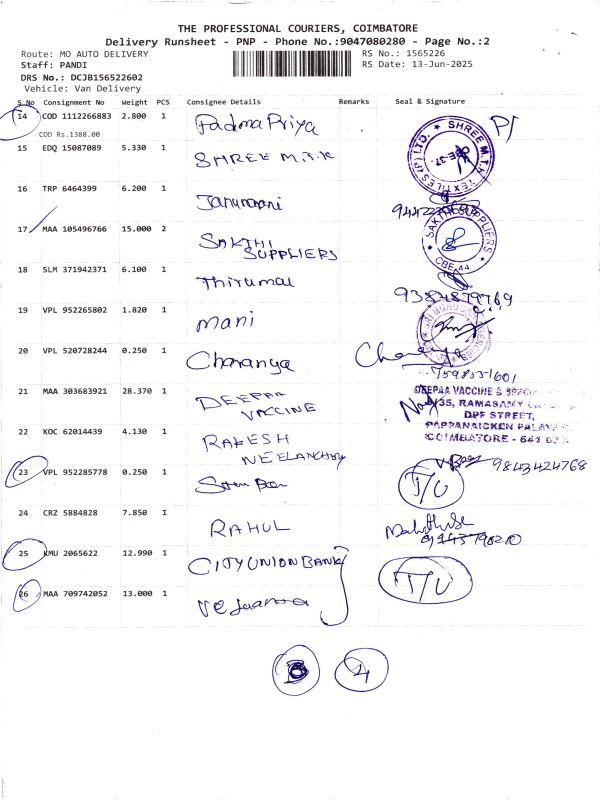 THE PROFESSIONAL COURIERS, COIMBATORE
Delivery Runsheet - PNP - Phone No.:9047080280 - Page No.:2
Route: MO AUTO DELIVERY
RS No.: 1565226
Staff: PANDI
RS Date: 13-Jun-2025
DRS No.: DCJB156522602
Vehicle: Van Delivery
S No Consignment No Weight PCS Consignee Details Remarks Seal & Signature
14 COD 1112266883 2.800 1 Padma Priya
COD Rs.1388.00
15 EDQ 15087089 5.330 1 SHREE M.T.K
SHREE M.T.K TEXTILES (P) LTD. CBE-37.
16 TRP 6464399 6.200 1
17 MAA 105496766 15.000 2 SAKTHI SUPPLIERS
SAKTHI SUPPLIERS CBE-44
18 SLM 371942371 6.100 1 Thirumal
9384879769
19 VPL 952265802 1.820 1 Mani
20 VPL 520728244 0.250 1 Charanya
21 MAA 303683921 28.370 1 DEEPAA VACCINE
DEEPAA VACCINE &
35, RAMASAMY
DPF STREET,
PAPPANAICKEN PALAYA
COIMBATORE - 641
22 KOC 62014439 4.130 1 RAKESH
9843424768
23 VPL 952285778 0.250 1
I/U
24 CRZ 5884828 7.850 1 RAHUL
25 KMU 2065622 12.990 1 CITY UNION BANK
I/U
26 MAA 709742052 13.000 1
4